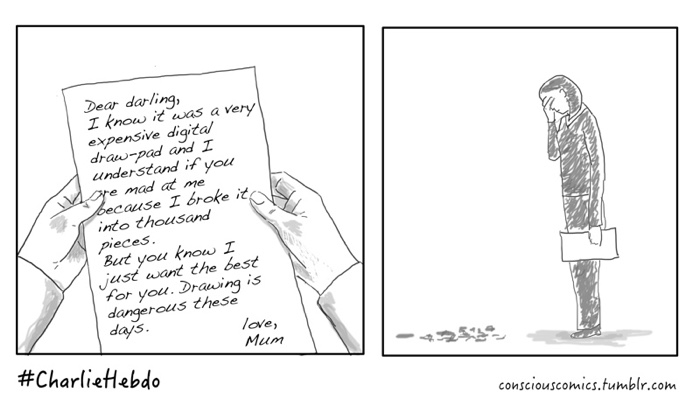 Dear darling,
I know it was a very
expensive digital
draw-pad and I
understand if you
are mad at me
because I broke it
into thousand
pieces.
But you know I
just want the best
for you. Drawing is
dangerous these
days.
love,
Mum
#CharlieHebdo
consciouscomics.tumblr.com